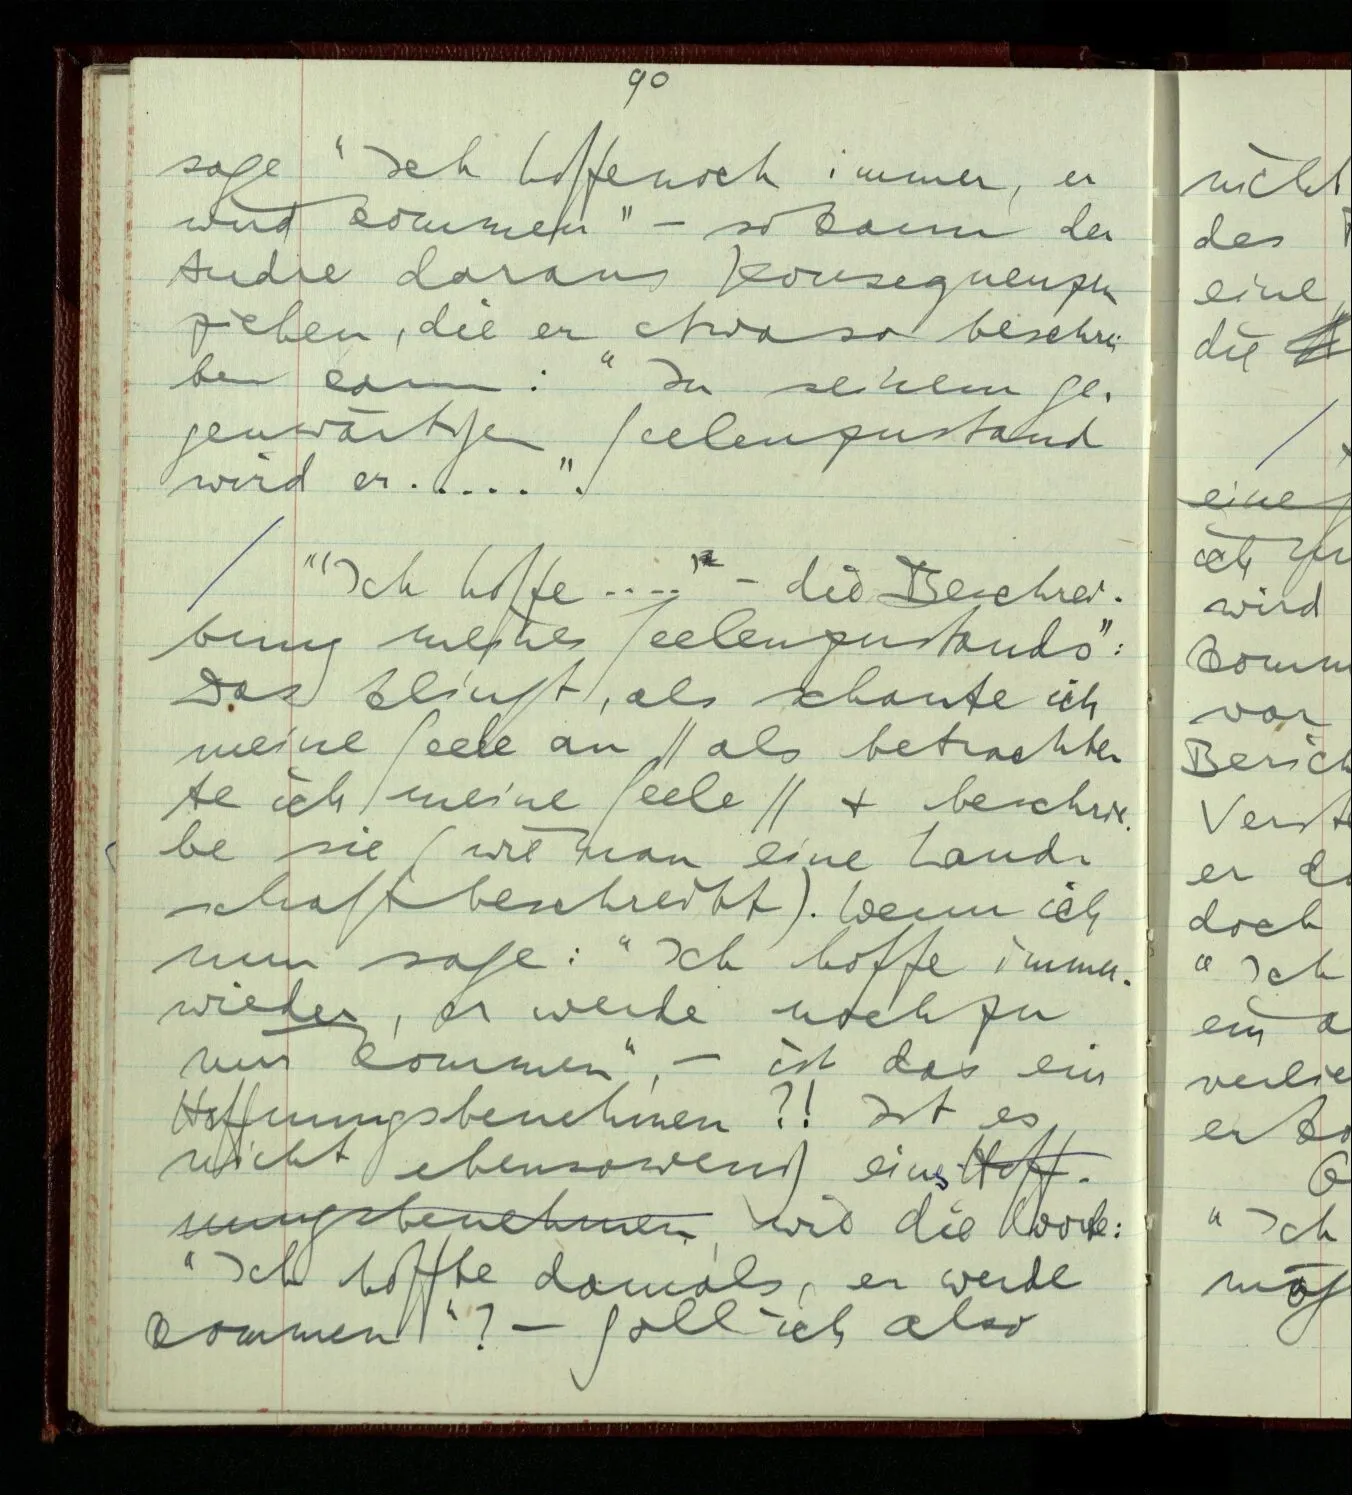 90
sage "Ich hoffe noch immer, er
wird kommen" – so kann der
Andre daraus Konsequenzen
ziehen, die er etwa so beschrei
ben kann: "In seinem ge-
genwärtigen Seelenzustand
wird er.....".
/ "'Ich hoffe ....' – die Beschrei-
bung meines Seelenzustands":
Das klingt, als schaute ich
meine Seele an // als betrachte
te ich meine Seele // + beschrie-
be sie (wie man eine Land-
schaft beschreibt). Wenn ich
nun sage: "Ich hoffe immer-
wieder, er werde noch zu
mir kommen", – ist das ein
Hoffnungsbenehmen ?! Ist es
nicht ebensowenig eins Hoff-
nungsbenehmen, wie die Worte:
"Ich hoffte damals, er werde
kommen"? – Soll ich also
nicht
des
eine
die
/
eine
ich
wird
vor
er
doch
"Ich
ein
"Ich